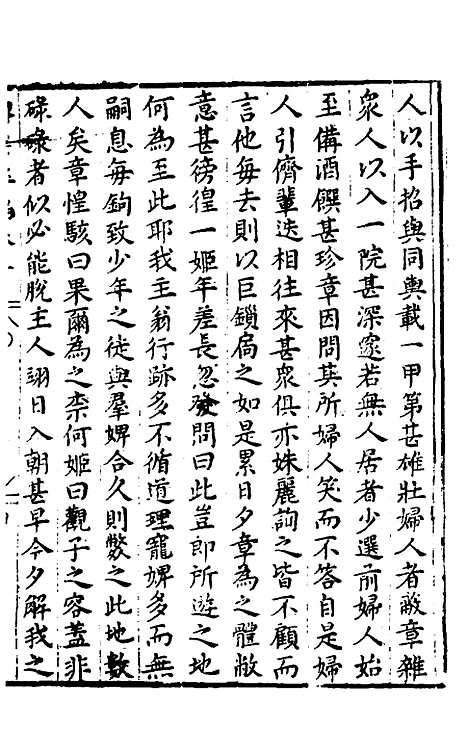 人以手招與同輿載一甲第甚雄壯婦人者蔽章雜
衆人以入一院甚深邃若無人居者少選前婦人始
至備酒饌甚珍章因問其所婦人笑而不答自是婦
人引儕輩迭相往來甚衆俱亦姝麗詢之皆不顧而
言他毎去則以巨鎖扃之如是累日夕章為之體敝
意甚徬徨一姬年差長忽發問曰此豈郎所遊之地
何為至此耶我主翁行跡多不循道理寵婢多而無
嗣息毎鉤致少年之徒與羣婢合久則斃之此地數
人矣章惶駭曰果爾為之柰何姬曰觀子之容蓋非
碌碌者似必能脫主人翊日入朝甚早今夕解我之